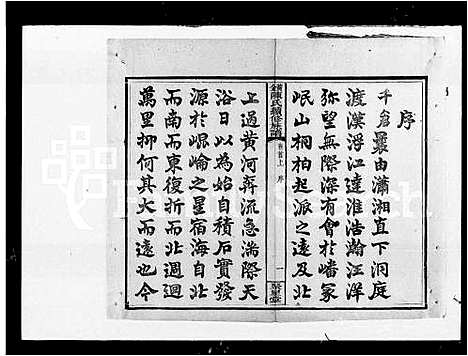 序
千倉曩由瀟湘直下洞庭
渡漢浮江達淮浩瀚汪洋
弥望無際深有會於嶓冢
岷山桐柏起派之遠及北
陳氏續修族譜
卷首上 序 一
上過黃河奔流急湍際天
浴日以為始自積石實發
源於崐崘之星宿海自北
而南而東復折而北週迴
萬里抑何其大而遠也今